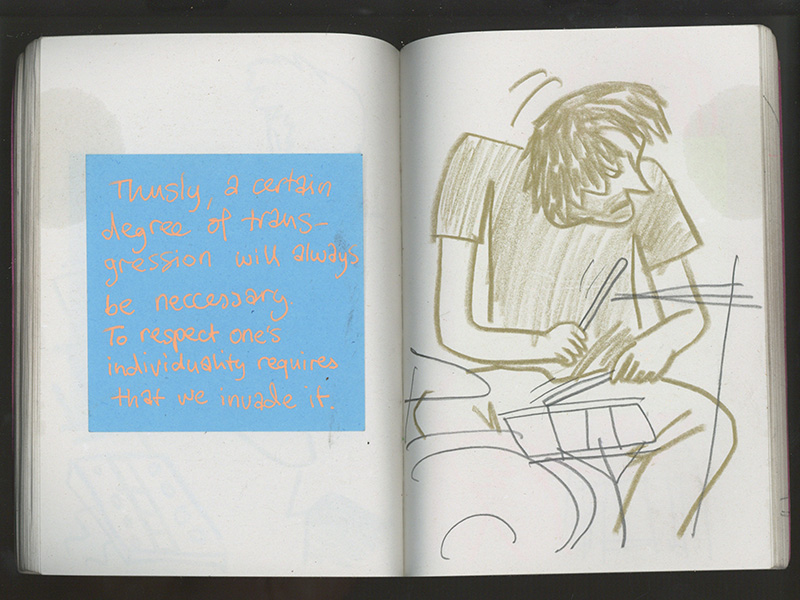 Thusly, a certain
degree of trans-
gression will always
be neccessary.
To respect one's
individuality requires
that we invade it.